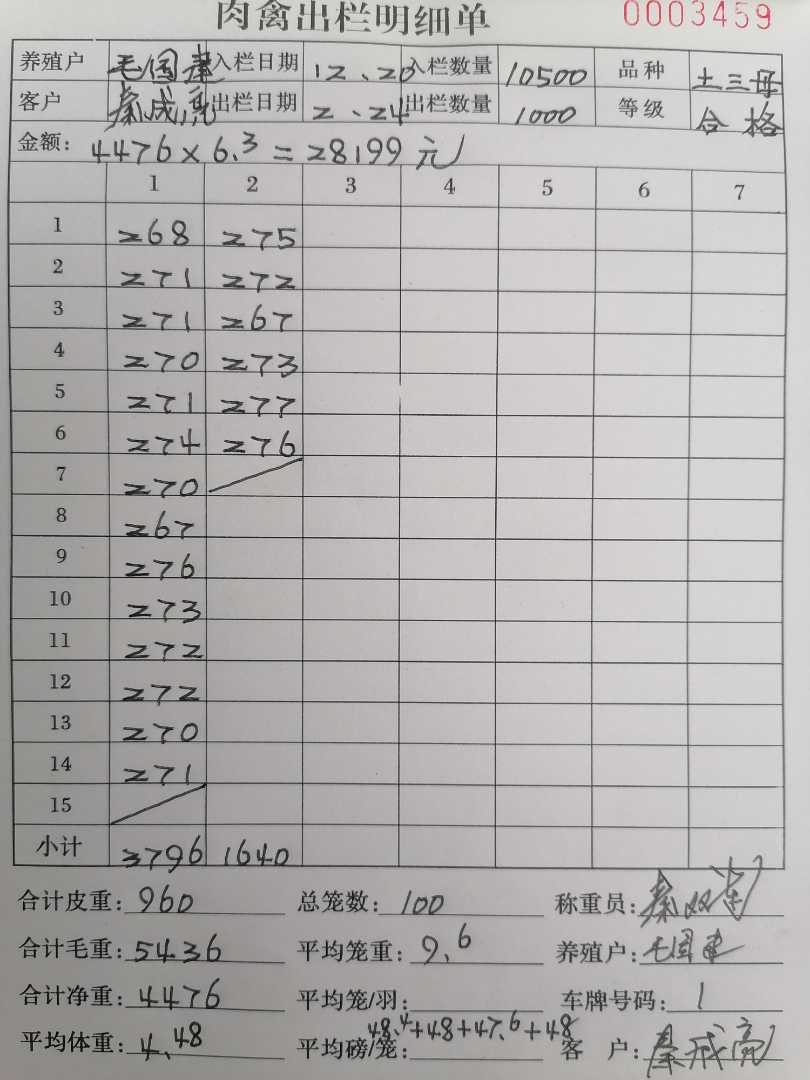 肉禽出栏明细单 0003459
养殖户 毛国建 入栏日期 12、20 入栏数量 10500 品种 土三母
客户 秦成亮 出栏日期 2、24 出栏数量 1000 等级 合格
金额: 4476×6.3=28199元
1 2 3 4 5 6 7
1 268 275
2 271 272
3 271 267
4 270 273
5 271 277
6 274 276
7 270
8 267
9 276
10 273
11 272
12 272
13 270
14 271
15
小计 3796 1640
合计皮重: 960 总笼数: 100 称重员: 秦双
合计毛重: 5436 平均笼重: 9.6 养殖户: 毛国建
合计净重: 4476 平均笼/羽: 车牌号码: 1
平均体重: 4.48 平均磅/笼: 48.4+48+47.6+48 客 户: 秦成亮